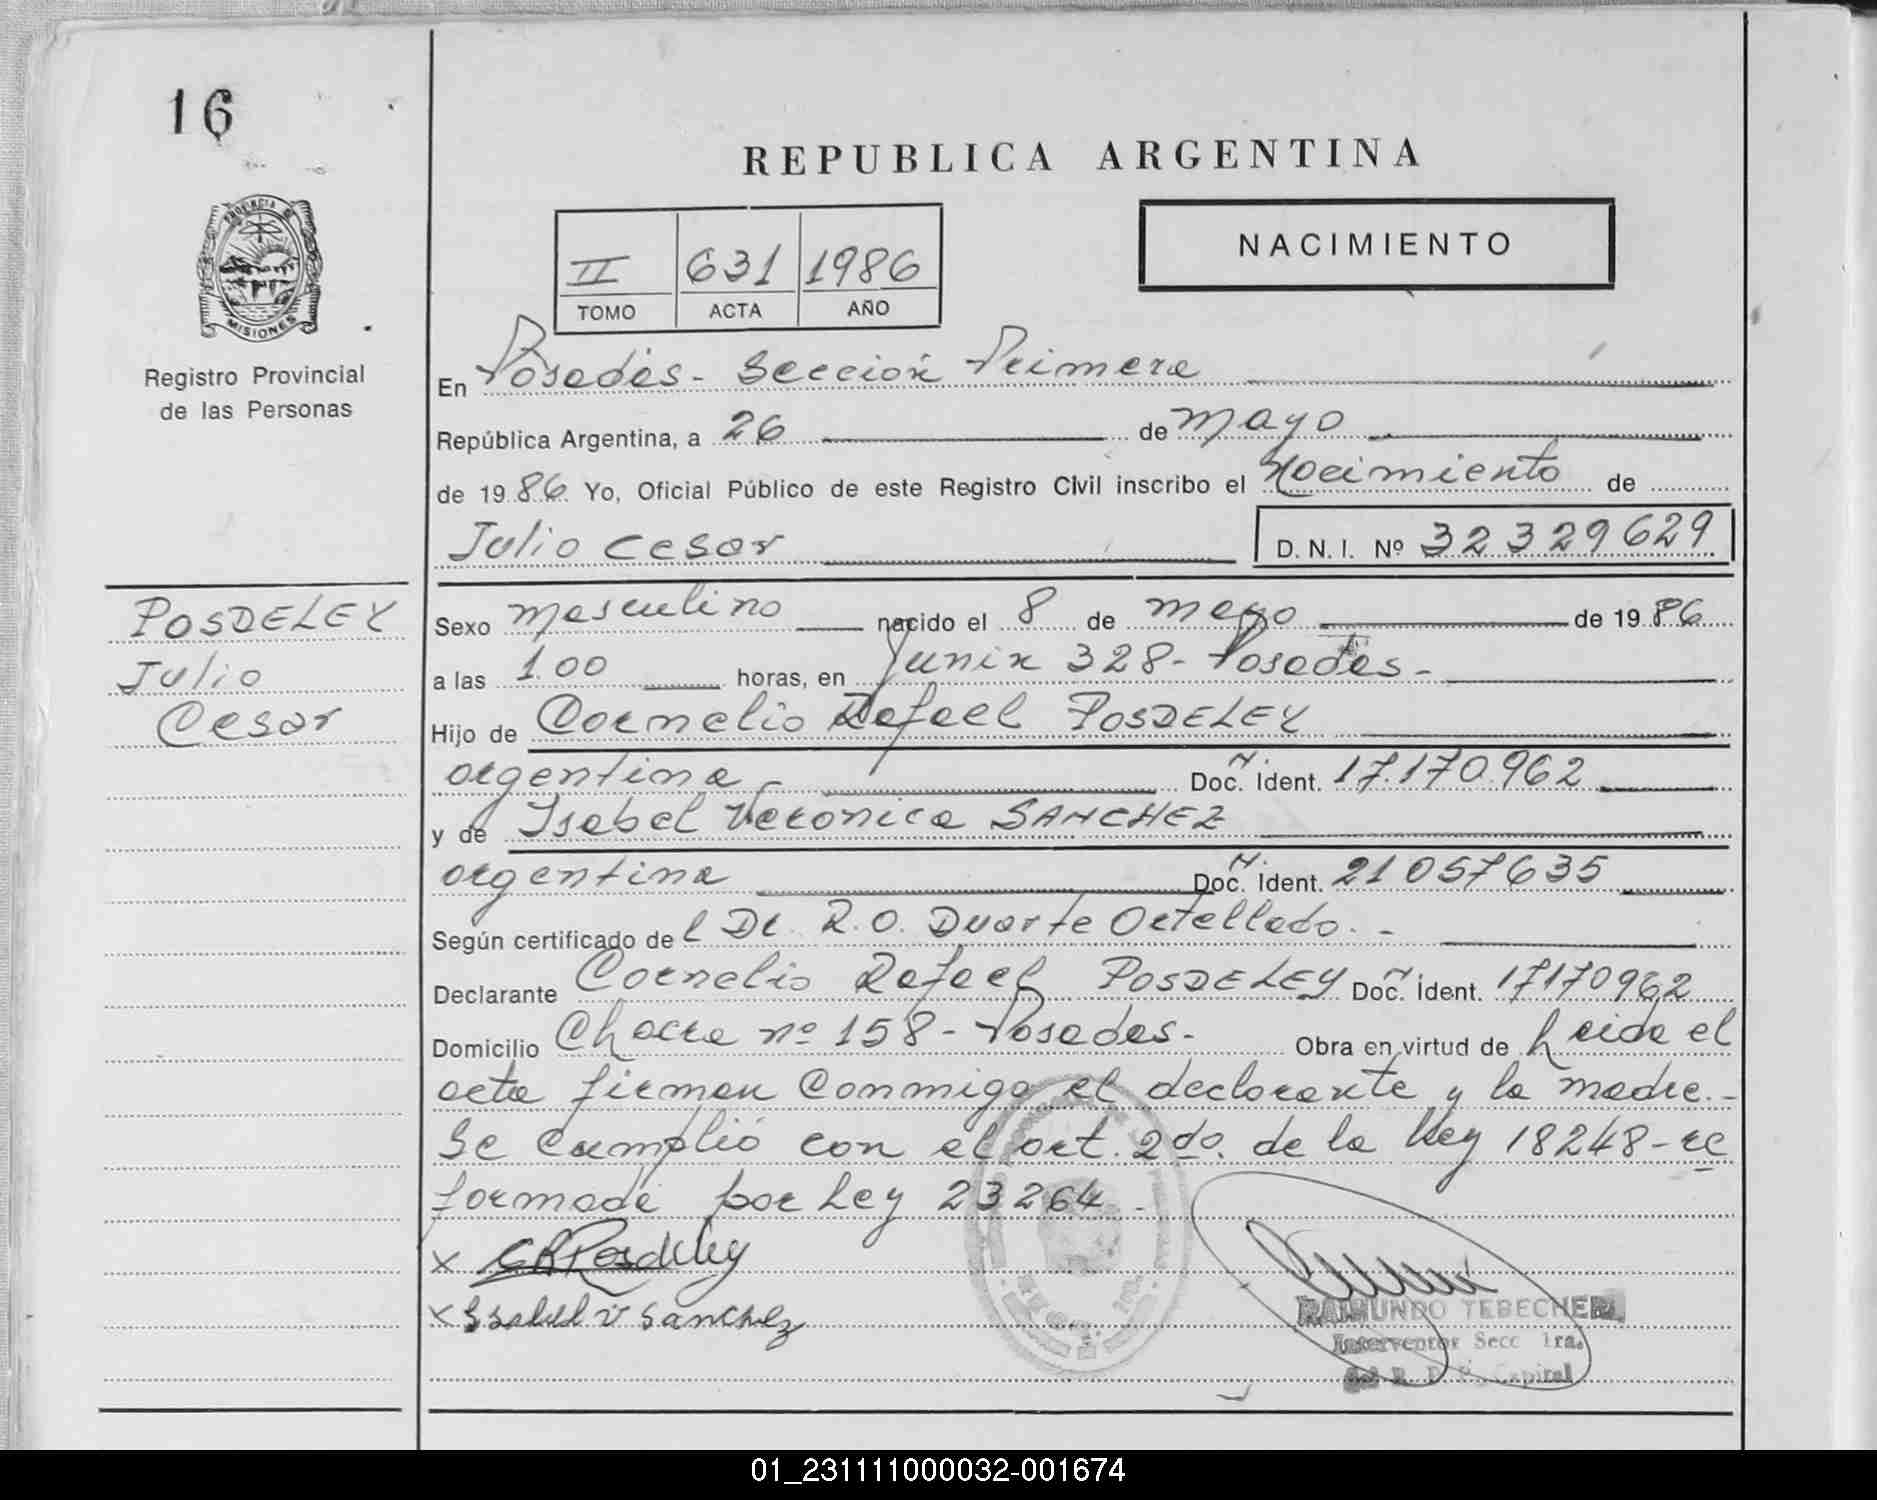 16
REPUBLICA ARGENTINA
PROVINCIA DE
MISIONES
Registro Provincial
de las Personas
II 631 1986
TOMO ACTA AÑO
NACIMIENTO
En Posadas - Sección Primera
República Argentina, a 26 de mayo
de 1986 Yo, Oficial Público de este Registro Civil inscribo el nacimiento de
Julio Cesar D. N. I. Nº 32329629
POSDELEY
Julio
Cesar
Sexo masculino nacido el 8 de mayo de 1986
a las 1.00 horas, en Junin 328 - Posadas -
Hijo de Cornelio Rafael POSDELEY
argentina - Doc. Ident. 17.170.962
y de Isabel Verónica SANCHEZ
argentina Doc. Ident. 21057635
Según certificado del Dr. R.O. Duarte Ortellado. -
Declarante Cornelio Rafael POSDELEY Doc. Ident. 17170962
Domicilio Chacra nº 158 - Posadas - Obra en virtud de Leida el
acta firman conmigo el declarante y la madre. -
Se cumplió con el art. 2do. de la Ley 18248 - re
formada por Ley 23264 -
x C R Posdeley
x Isabel v Sanchez
RAIMUNDO TEBECHERI
Interventor Secc 1ra.
del R. P. P. Capital
01_231111000032-001674